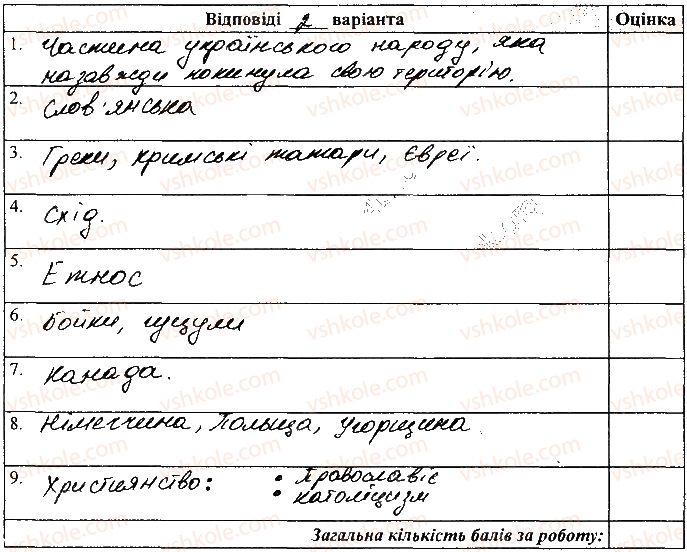 Відповіді 2 варіанта Оцінка
1. Частина українського народу, яка
назавжди покинула свою територію.
2. Слов'янська
3. Греки, кримські татари, Євреї.
4. Схід.
5. Етнос
6. Бойки, гуцули
7. Канада.
8. Німеччина, Польща, угорщина.
9. Християнство: • Православіє
• католіцизм
Загальна кількість балів за роботу:
vshkole.com